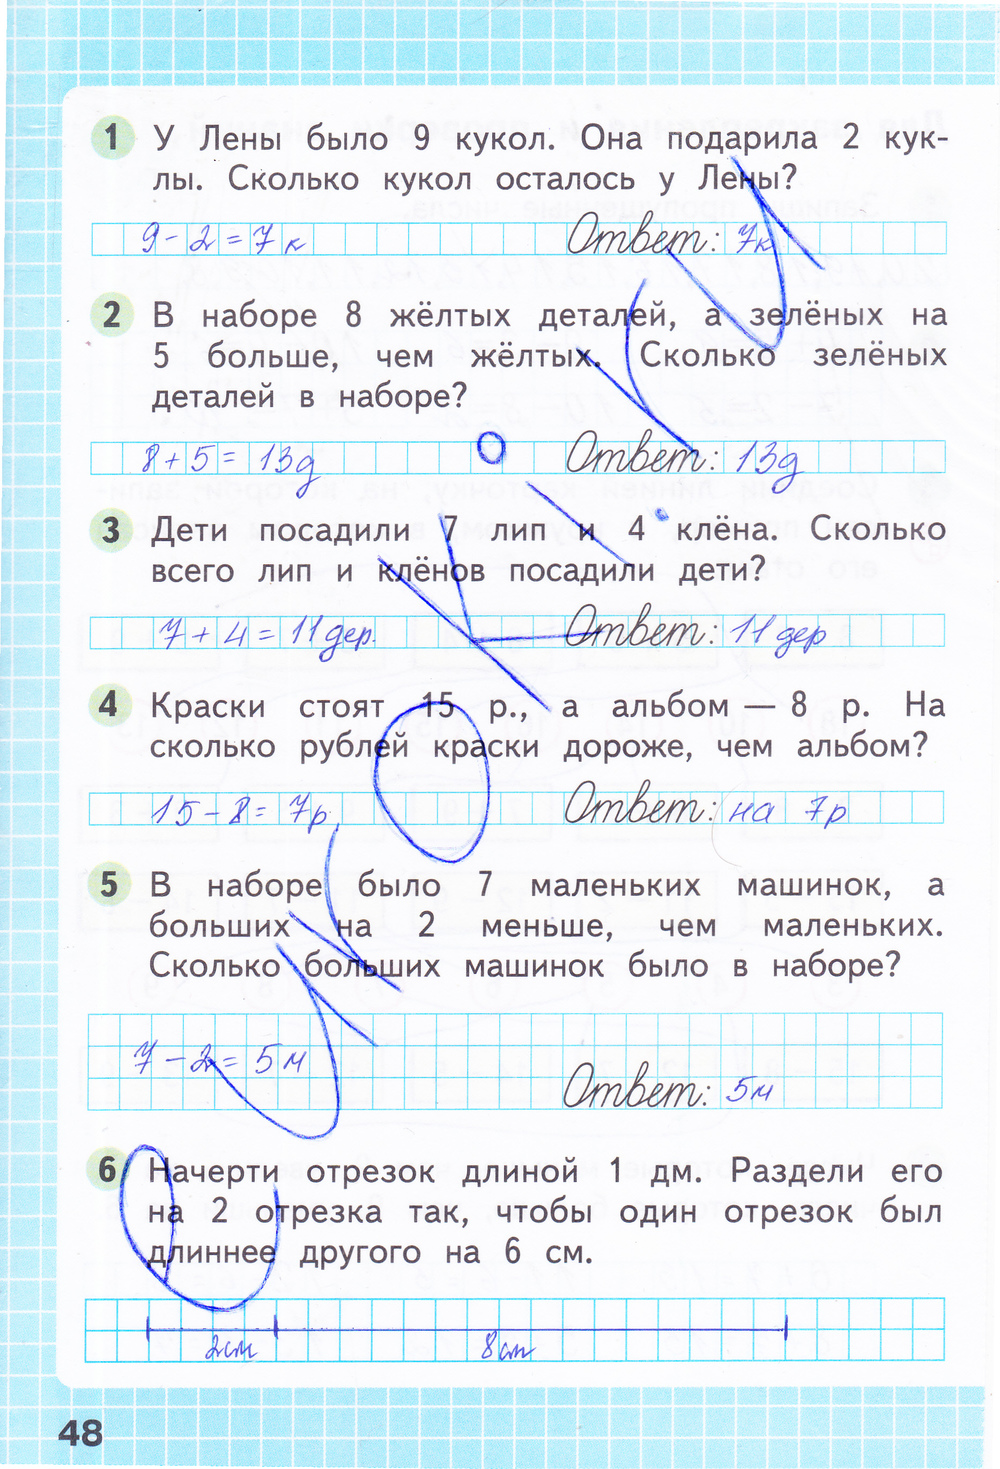 1 У Лены было 9 кукол. Она подарила 2 кук-
лы. Сколько кукол осталось у Лены?
9 - 2 = 7 к Ответ: 7к
2 В наборе 8 жёлтых деталей, а зелёных на
5 больше, чем жёлтых. Сколько зелёных
деталей в наборе?
8 + 5 = 13д Ответ: 13д
3 Дети посадили 7 лип и 4 клёна. Сколько
всего лип и клёнов посадили дети?
7 + 4 = 11дер. Ответ: 11дер
4 Краски стоят 15 р., а альбом — 8 р. На
сколько рублей краски дороже, чем альбом?
15 - 8 = 7р Ответ: на 7р
5 В наборе было 7 маленьких машинок, а
больших на 2 меньше, чем маленьких.
Сколько больших машинок было в наборе?
7 - 2 = 5м
Ответ: 5м
6 Начерти отрезок длиной 1 дм. Раздели его
на 2 отрезка так, чтобы один отрезок был
длиннее другого на 6 см.
2см 8см
48